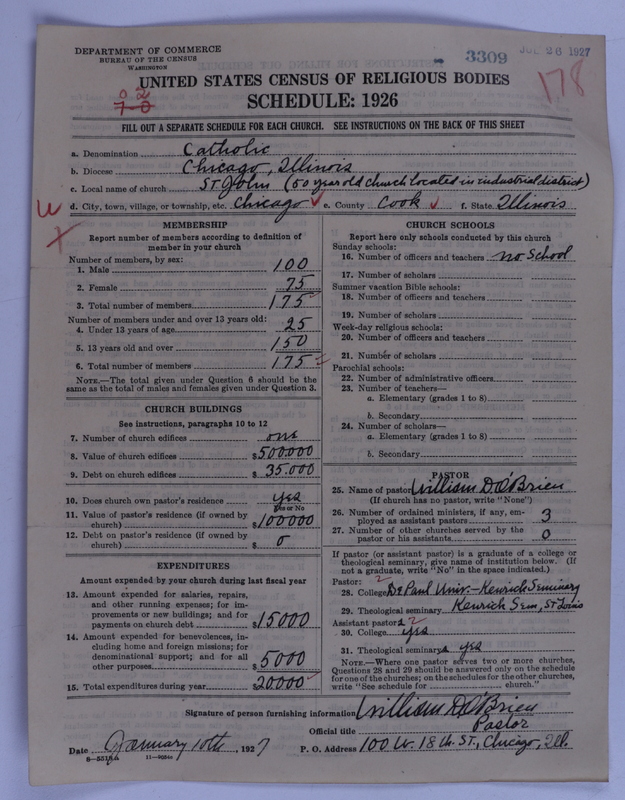 DEPARTMENT OF COMMERCE
BUREAU OF THE CENSUS
WASHINGTON
3309
26 1927
178
0 2
7-0
UNITED STATES CENSUS OF RELIGIOUS BODIES
SCHEDULE: 1926
FILL OUT A SEPARATE SCHEDULE FOR EACH CHURCH. SEE INSTRUCTIONS ON THE BACK OF THIS SHEET
a. Denomination Catholic
b. Diocese Chicago, Illinois
c. Local name of church St John (50 year old church located in industrial district)
d. City, town, village, or township, etc. Chicago e. County Cook f. State Illinois
MEMBERSHIP
Report number of members according to definition of
member in your church
Number of members, by sex:
1. Male 100
2. Female 75
3. Total number of members 175
Number of members under and over 13 years old:
4. Under 13 years of age 25
5. 13 years old and over 150
6. Total number of members 175
NOTE.—The total given under Question 6 should be
same as the total of males and females given under Question 3.
CHURCH BUILDINGS
See instructions, paragraphs 10 to 12
7. Number of church edifices one
8. Value of church edifices $500.000
9. Debt on church edifices $35.000
10. Does church own pastor's residence yes
Yes or No
11. Value of pastor's residence (if owned by
church) $100000
12. Debt on pastor's residence (if owned by
church) $ 0
EXPENDITURES
Amount expended by your church during last fiscal year
13. Amount expended for salaries, repairs,
and other running expenses; for im-
provements or new buildings; and for
payments on church debt $15000
14. Amount expended for benevolences, in-
cluding home and foreign missions; for
denominational support; and for all
other purposes $5000
15. Total expenditures during year $20.000
CHURCH SCHOOLS
Report here only schools conducted by this church
Sunday schools:
16. Number of officers and teachers no School
17. Number of scholars
Summer vacation Bible schools:
18. Number of officers and teachers
19. Number of scholars
Week-day religious schools:
20. Number of officers and teachers
21. Number of scholars
Parochial schools:
22. Number of administrative officers
23. Number of teachers—
a. Elementary (grades 1 to 8)
b. Secondary
24. Number of scholars—
a. Elementary (grades 1 to 8)
b. Secondary
PASTOR
25. Name of pastor William D O'Brien
(If church has no pastor, write "None")
26. Number of ordained ministers, if any, em-
ployed as assistant pastors 3
27. Number of other churches served by the
pastor or his assistants 0
If pastor (or assistant pastor) is a graduate of a college or
theological seminary, give name of institution below. (If
not a graduate, write "No" in the space indicated.)
Pastor: 2
28. College De Paul Univ.-Kenrich Seminary
29. Theological seminary Kenrich Sem, St Louis
Assistant pastor: 2
30. College yes
31. Theological seminary yes
NOTE.—Where one pastor serves two or more churches,
Questions 28 and 29 should be answered only on the schedule
for one of the churches; on the schedules for the other churches,
write "See schedule for church."
Signature of person furnishing information William D. O'Brien
Official title Pastor
Date January 10th, 1927 P. O. Address 100 W. 18 th. ST., Chicago, Ill.
8-5518A 11-9024